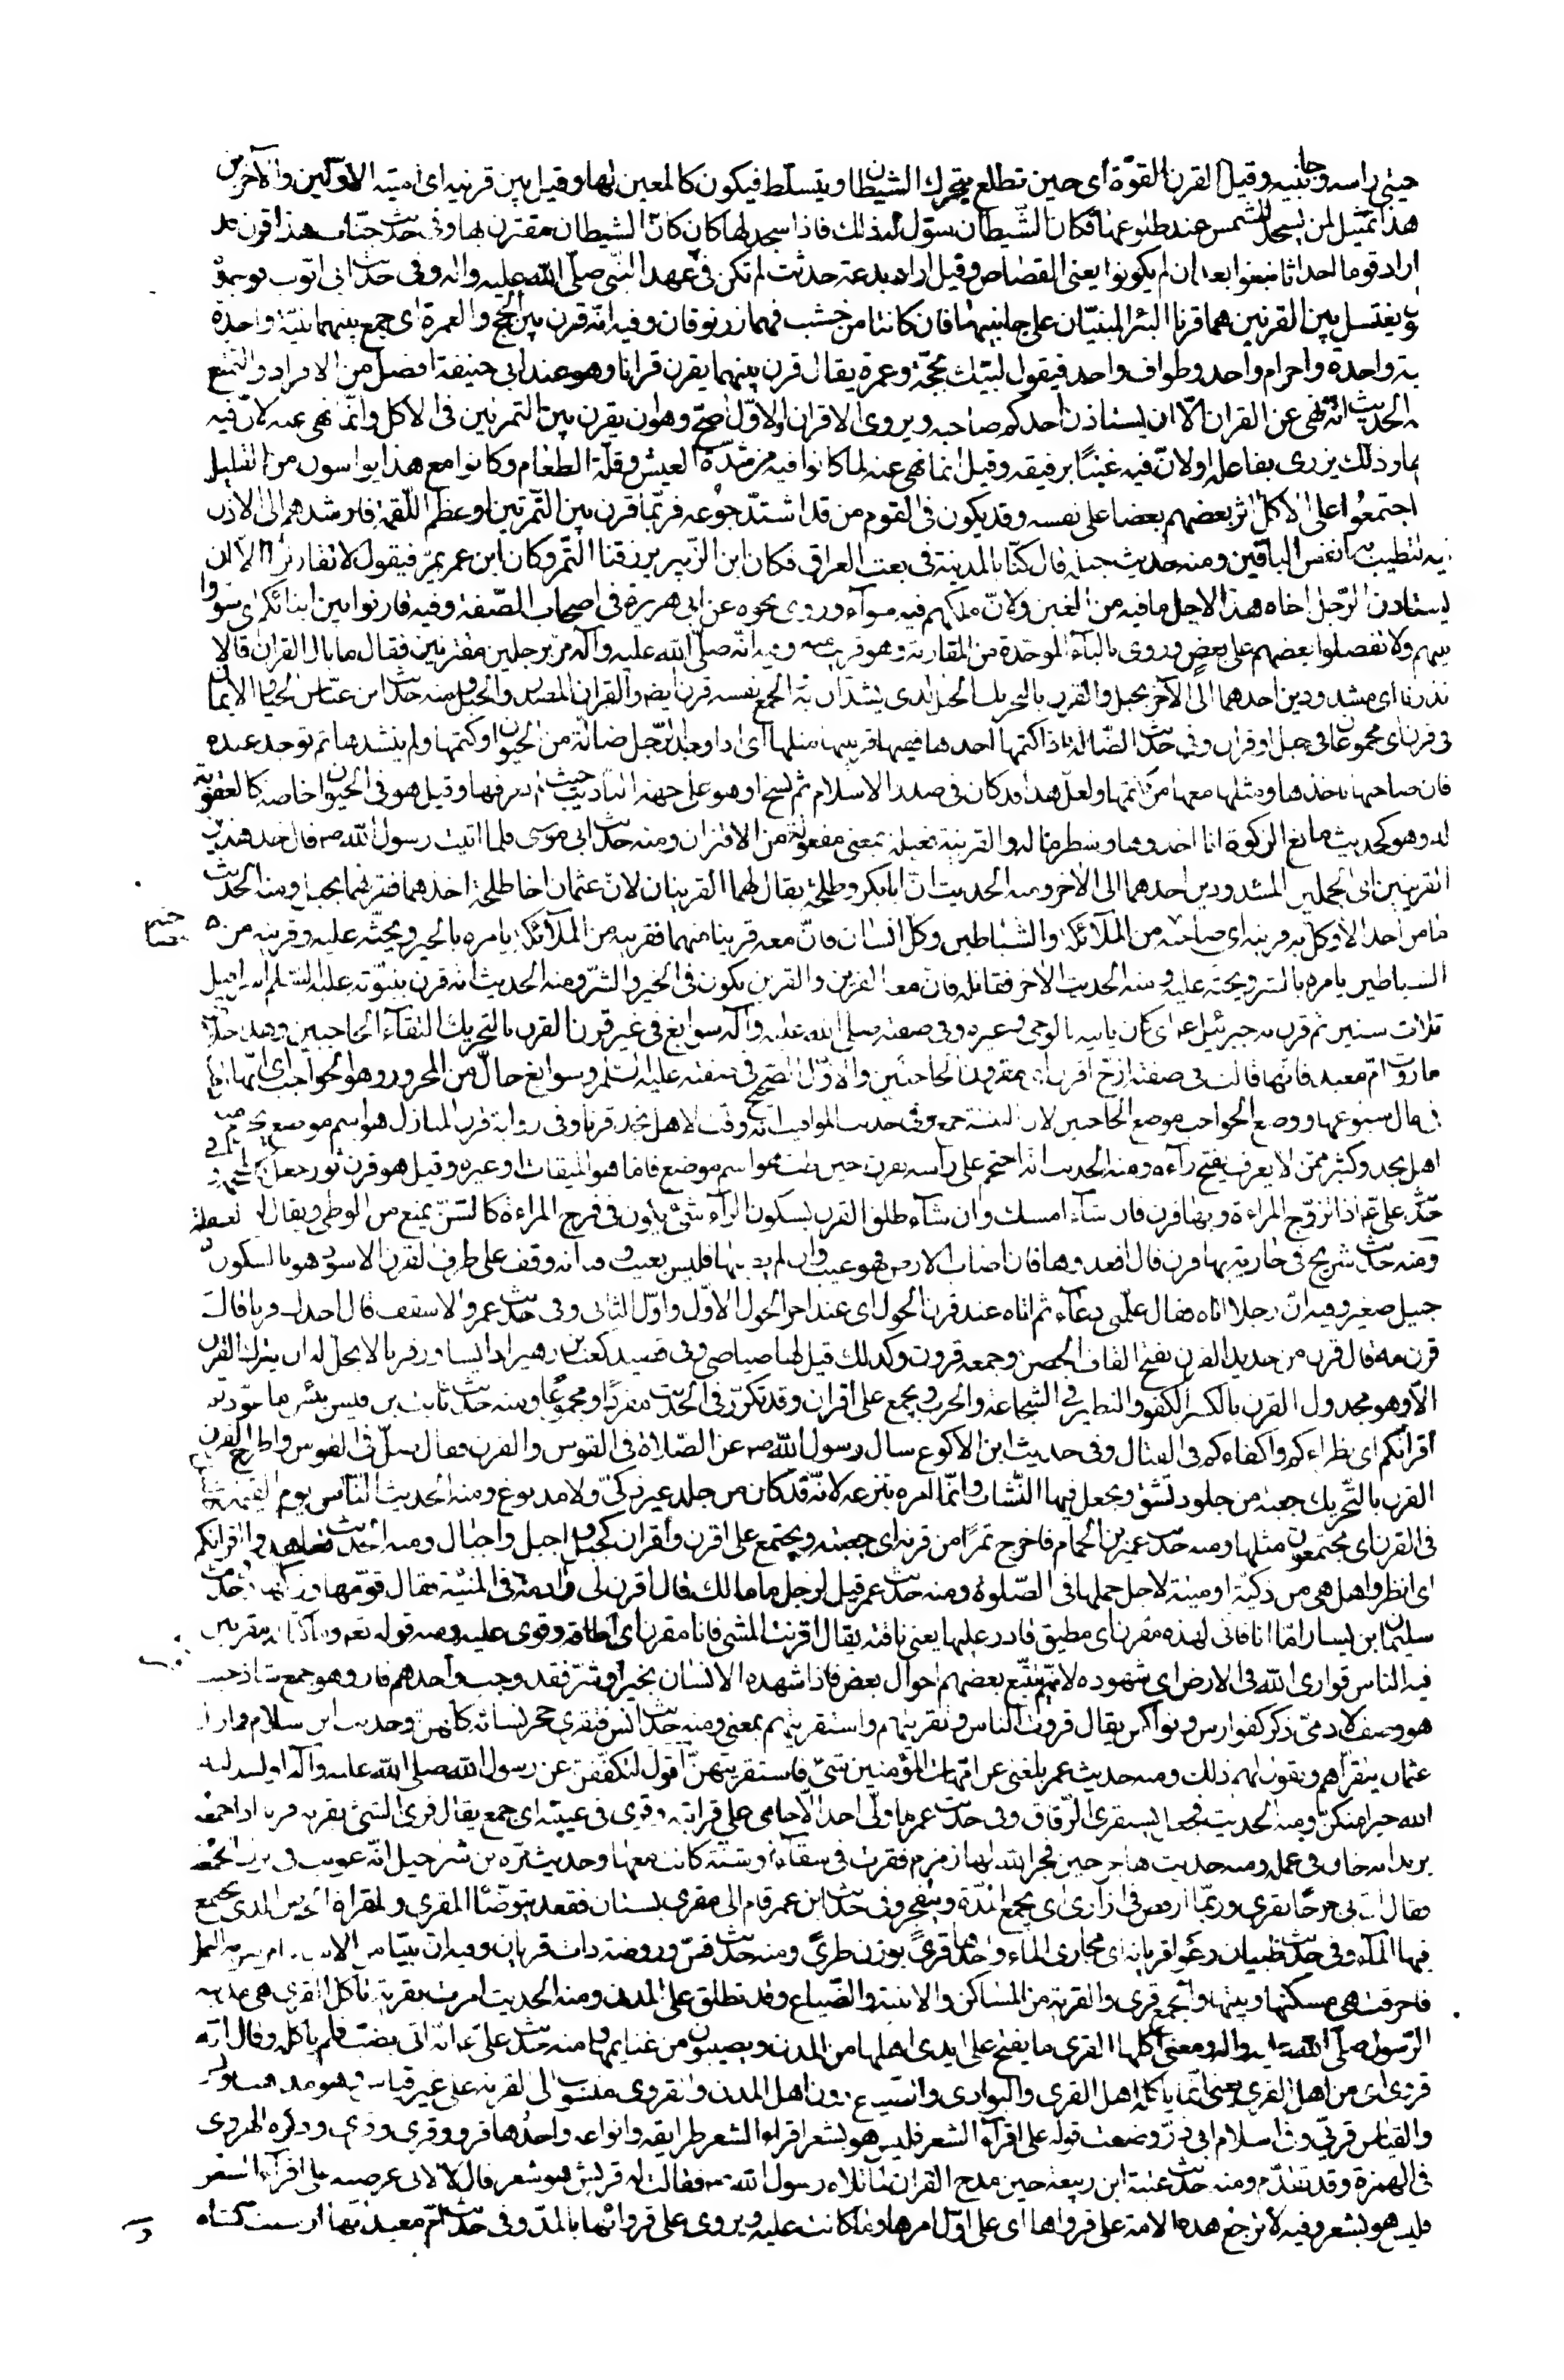 حيتى راسه وجانبيه وقيل القرن القوّة اى حين تطلع يتحرك الشيطان ويتسلّط فيكون كالمعين لها وقيل بين قرنيه اى امتيه الاوّلين والآخرين
هذا تمثيل لمن يسجد للشمس عند طلوعها فكان الشيطان سوّل له ذلك فاذا سجد لها كان كانّ الشيطان مقترن بها وفى حديث خبّاب هذا قرن قد
اراد قوما احداثا نبغوا بعد ان لم يكونوا يعنى القصّاص وقيل اراد بدعة حدثت لم تكن فى عهد النبى صلّى الله عليه واله وفى حديث ابى ايّوب فوجده
يغتسل بين القرنين هما قرنا البئر المبنيّان على جانبيها فان كانتا من خشب فهما زرنوقان وفيه انّه قرن بين الحج والعمرة اى جمع بينهما بنيّة واحدة
ية واحدة واحرام واحد وطواف واحد فيقول لبيّك بحجّة وعمرة يقال قرن بينهما يقرن قرانا وهو عند ابى حنيفة افضل من الافراد والتمتع
الحديث انّه نهى عن القران الّا ان يستاذن احدكم صاحبه ويروى الاقران والاوّل اصحّ وهو ان يقرن بين التمرتين فى الاكل وانّما نهى عنه لانّ فيه
وذلك يزرى بفاعله او لانّ فيه غبنًا برفيقه وقيل انما نهى عنه لما كانوا فيه من شدّة العيش وقلّة الطعام وكانوا مع هذا يواسون من القليل
اجتمعوا على الاكل اثر بعضهم بعضا على نفسه وقد يكون فى القوم من قد اشتدّ جوعه فربّما قرن بين التّمرتين او عظّم اللّقمة فارشدهم الى الاذن
فيه لتطيب به انفس الباقين ومنه حديث جبلة قال كنّا بالمدينة فى بعث العراق فكان ابن الزّبير يرزقنا التّمر وكان ابن عمر يمرّ فيقول لا تقارنوا الّا ان
يستاذن الرّجل اخاه هذا لاجل ما فيه من الغبن ولانّ ملكهم فيه سوآء وروى نحوه عن ابى هريرة فى اصحاب الصّفة وفيه قارنوا بين ابنائكم اى سوّوا
بينهم ولا تفضلوا بعضهم على بعض وروى بالبآء الموحّدة من المقاربة وهو قريب منه وفيه انّه صلّى الله عليه وآله مرّ برجلين مقترنين فقال ما بال القران قالا
نذرنا اى مشدودين احدهما الى الآخر بحبل والقرن بالتحريك الحبل الذى يشدّان به الجمع نفسه قرن ايضا والقران المصدر والحبل ومنه حديث ابن عبّاس الحيا والايمان
فى قرن اى مجموعان فى حبل او قران وفى حديث الضّالة اذا كتمها احدها ففيها قرينتها مثلها اى اذا وجد الرّجل ضالّة من الحيوان وكتمها ولم ينشدها ثم توجد عنده
فان صاحبها ياخذها ومثلها معها من كاتمها ولعلّ هذا قد كان فى صدر الاسلام ثم نسخ او هو على جهة التاديب حيث لم يعرفها وقيل هو فى الحيوان خاصّة كالعقوبة
له وهو كحديث مانع الزكوة انا آخذوها وشطر ماله والقرينة فعيلة بمعنى مفعولة من الاقتران ومنه حديث ابى موسى فلما اتيت رسول الله ص قال خذ هذين
القرينين اى الجملين المشدودين احدهما الى الآخر ومنه الحديث انّ ابا بكر وطلحة يقال لهما القرينان لانّ عثمان اخا طلحة اخذهما فقرنهما بحبل ومنه الحديث
ما من احد الّا وكّل به قرينه اى صاحبه من الملآئكة والشّياطين وكل انسان فانّ معه قرينا منهما فقرينه من الملآئكة يامره بالخير ويحثّه عليه وقرينه من
الشياطين يامره بالشر ويحثّه عليه ومنه الحديث الآخر فقاتله فانّ معه القرين والقرين يكون فى الخير والشرّ ومنه الحديث انه قرن بنبوّته عليه السّلم اسرافيل
ثلاث سنين ثم قرن به جبرئيل ع اى كان ياتيه بالوحى وغيره وفى صفته صلى الله عليه وآله سوابغ فى غير قرن القرن بالتحريك التقآء الحاجبين وهذا خلاف
ما روت امّ معبد فانّها قالت فى صفته ازجّ اقرن اى مقرون الحاجبين والاوّل الصّحيح فى صفته عليه السّلم وسوابغ حال من المجرور وهو الحواجب اى انّها
فى حال سبوغها ووضع الحواجب موضع الحاجبين لانّ التثنية جمع وفى حديث المواقيت انّه وقّت لاهل نجد قرنا وفى رواية قرن المنازل هو اسم موضع يحرم منه
اهل نجد وكثير ممّن لا يعرف يفتح رآءه ومنه الحديث انّه احتجم على راسه بقرن حين طبّ هو اسم موضع فامّا هو الميقات او غيره وقيل هو قرن ثور جعل كالمحجمة
حديث على ع اذا تزوّج المراءة وبها قرن فان شآء امسك وان شآء طلق القرن بسكون الرآء شئ يكون فى فرج المراءة كالسّنّ يمنع من الوطى ويقال له العفلة
ومنه حديث شريح فى جارية بها قرن قال اقعدوها فان اصاب الارض فهو عيب وان لم يصبها فليس بعيب وفيه انّه وقف على طرف القرن الاسود هو بالسكون
جبيل صغير وفيه انّ رجلا اتاه فقال علّمنى دعآء ثم اتاه عند قرن الحول اى عند اخر الحول الاوّل واوّل الثانى وفى حديث عمر والاسقف قال اجدك قرنا قال
قرن مه قال قرن من حديد القرن بفتح القاف الحصن وجمعه قرون وكذلك قيل لها صياصى وفى قصيد كعب بن زهير اذا يساور قرنا لا يحلّ له ان يترك القرن
الّا وهو مجدول القرن بالكسر الكفو والنظير فى الشجاعة والحرب ويجمع على اقران وقد تكرّر فى الحديث مفردًا ومجموعًا ومنه حديث ثابت بن قيس بئس ما عوّدتم
اقرانكم اى نظراءكم واكفاءكم فى القتال وفى حديث ابن الاكوع سال رسول الله ص عن الصّلاة فى القوس والقرن فقال صلّ فى القوس واطرح القرن
القرن بالتّحريك جعبة من جلود تشقّ ويجعل فيها النّشاب وانّما امره بنزعه لانّه قد كان من جلد غير ذكىّ ولا مدبوغ ومنه الحديث النّاس يوم القيمة
فى القرن اى مجتمعون مثلها ومنه حديث عمير بن الحمام فاخرج تمرًا من قرنه اى جعبته ويجتمع على اقرن واقران كجبل واجبل واجبال ومنه الحديث تعاهدوا اقرانكم
اى انظروا هل هى من ذكيّة او ميتة لاجل حملها فى الصّلوة ومنه حديث عمر قيل لرجل ما مالك قال اقرن لى وآدمة فى المنيئة فقال قوّمها وزكّها
سليمان ابن يسار امّا انا فانّى لهذه مقرن اى مطيق قادر عليها يعنى ناقته يقال اقرنت للشئ فانا مقرن اى اطاقه وقوى عليه ومنه قوله تعه وما كنّا له مقرنين
فيه الناس قوارى الله فى الارض اى شهوده لانّهم يتتبّع بعضهم احوال بعض فاذا شهدوا لانسان بخير او شرّ فقد وجب واحدهم قار وهو جمع شاذ حيث
هو وصف لآدمىّ ذكر كفوارس ونواكس يقال قروت الناس وتقريتهم واستقريتهم بمعنى ومنه حديث انس فتقرى حجر نسائه كلّهنّ وحديث ابن سلام فما زال
عثمان يتقراهم ويقول لهم ذلك ومنه حديث عمر بلغنى عن امّهات المؤمنين شئ فاستقريتهنّ اقول لتكففن عن رسول الله صلى الله عليه وآله او ليبدلنه
الله خيرا منكنّ ومنه الحديث فجعل يستقرى الرّفاق وفى حديث عمر ما ولّى احد الّا حامى على قرابته وقرى فى عيبته اى جمع يقال قرى الشئ يقريه قريا اذا جمعه
يريد انه خان فى عمله ومنه حديث هاجر حين فجر الله لها زمزم فقرت فى سقآء او شنّة كانت معها وحديث مرّة بن شرحبيل انّه عوتب فى ترك الجمعة
فقال انّ بى جرحًا يقرى وربّما ارفض فى ازارى اى يجمع المدّة وينفجر وفى حديث ابن عمر قام الى مقرى بستان فقعد يتوضّأ المقرى والمقراة الحوض الذى يجتمع
فيها المآء وفى حديث ظبيان رعوا قريانه اى مجارى الماء واحدها قرىّ بوزن طرىّ ومنه حديث قسّ وروضة ذات قريان وفيه ان نبيّا من الانبياء امر بقرية النمل
فاحرقت هى مسكنها وبيتها والجمع قرى والقرية من المساكن والابنية والضّياع وقد تطلق على المدن ومنه الحديث امرت بقرية تاكل القرى هى مدينة
الرّسول صلّى الله عليه واله ومعنى اكلها القرى ما يفتح على ايدى اهلها من المدن ويصيبون من غنايمها ومنه حديث على ع انّه اتى بضبّ فلم ياكله وقال انّه
قروى اى من اهل القرى يعنى انّما ياكله اهل القرى والبوادى والضياع دون اهل المدن والقروى منسوب الى القرية على غير قياس وهو مذهب يونس
والقياس قرئيّ وفى اسلام ابى ذرّ وضعت قوله على اقرآء الشعر فليس هو بشعر اقراء الشعر طرايقه وانواعه واحدها قرو وقرى وذكره الهروى
فى الهمزة وقد تقدّم ومنه حديث عتبة ابن ربيعة حين مدح القران لمّا تلاه رسول الله ص فقالت له قريش هو شعر قال لا لانى عرضته على اقرآء الشعر
فليس هو بشعر وفيه لا ترجع هذه الامّة على قرواها اى على اوّل امرها وما كانت عليه ويروى على قروائها بالمدّ وفى حديث امّ معبد انّها ارسلت اليه بشاة